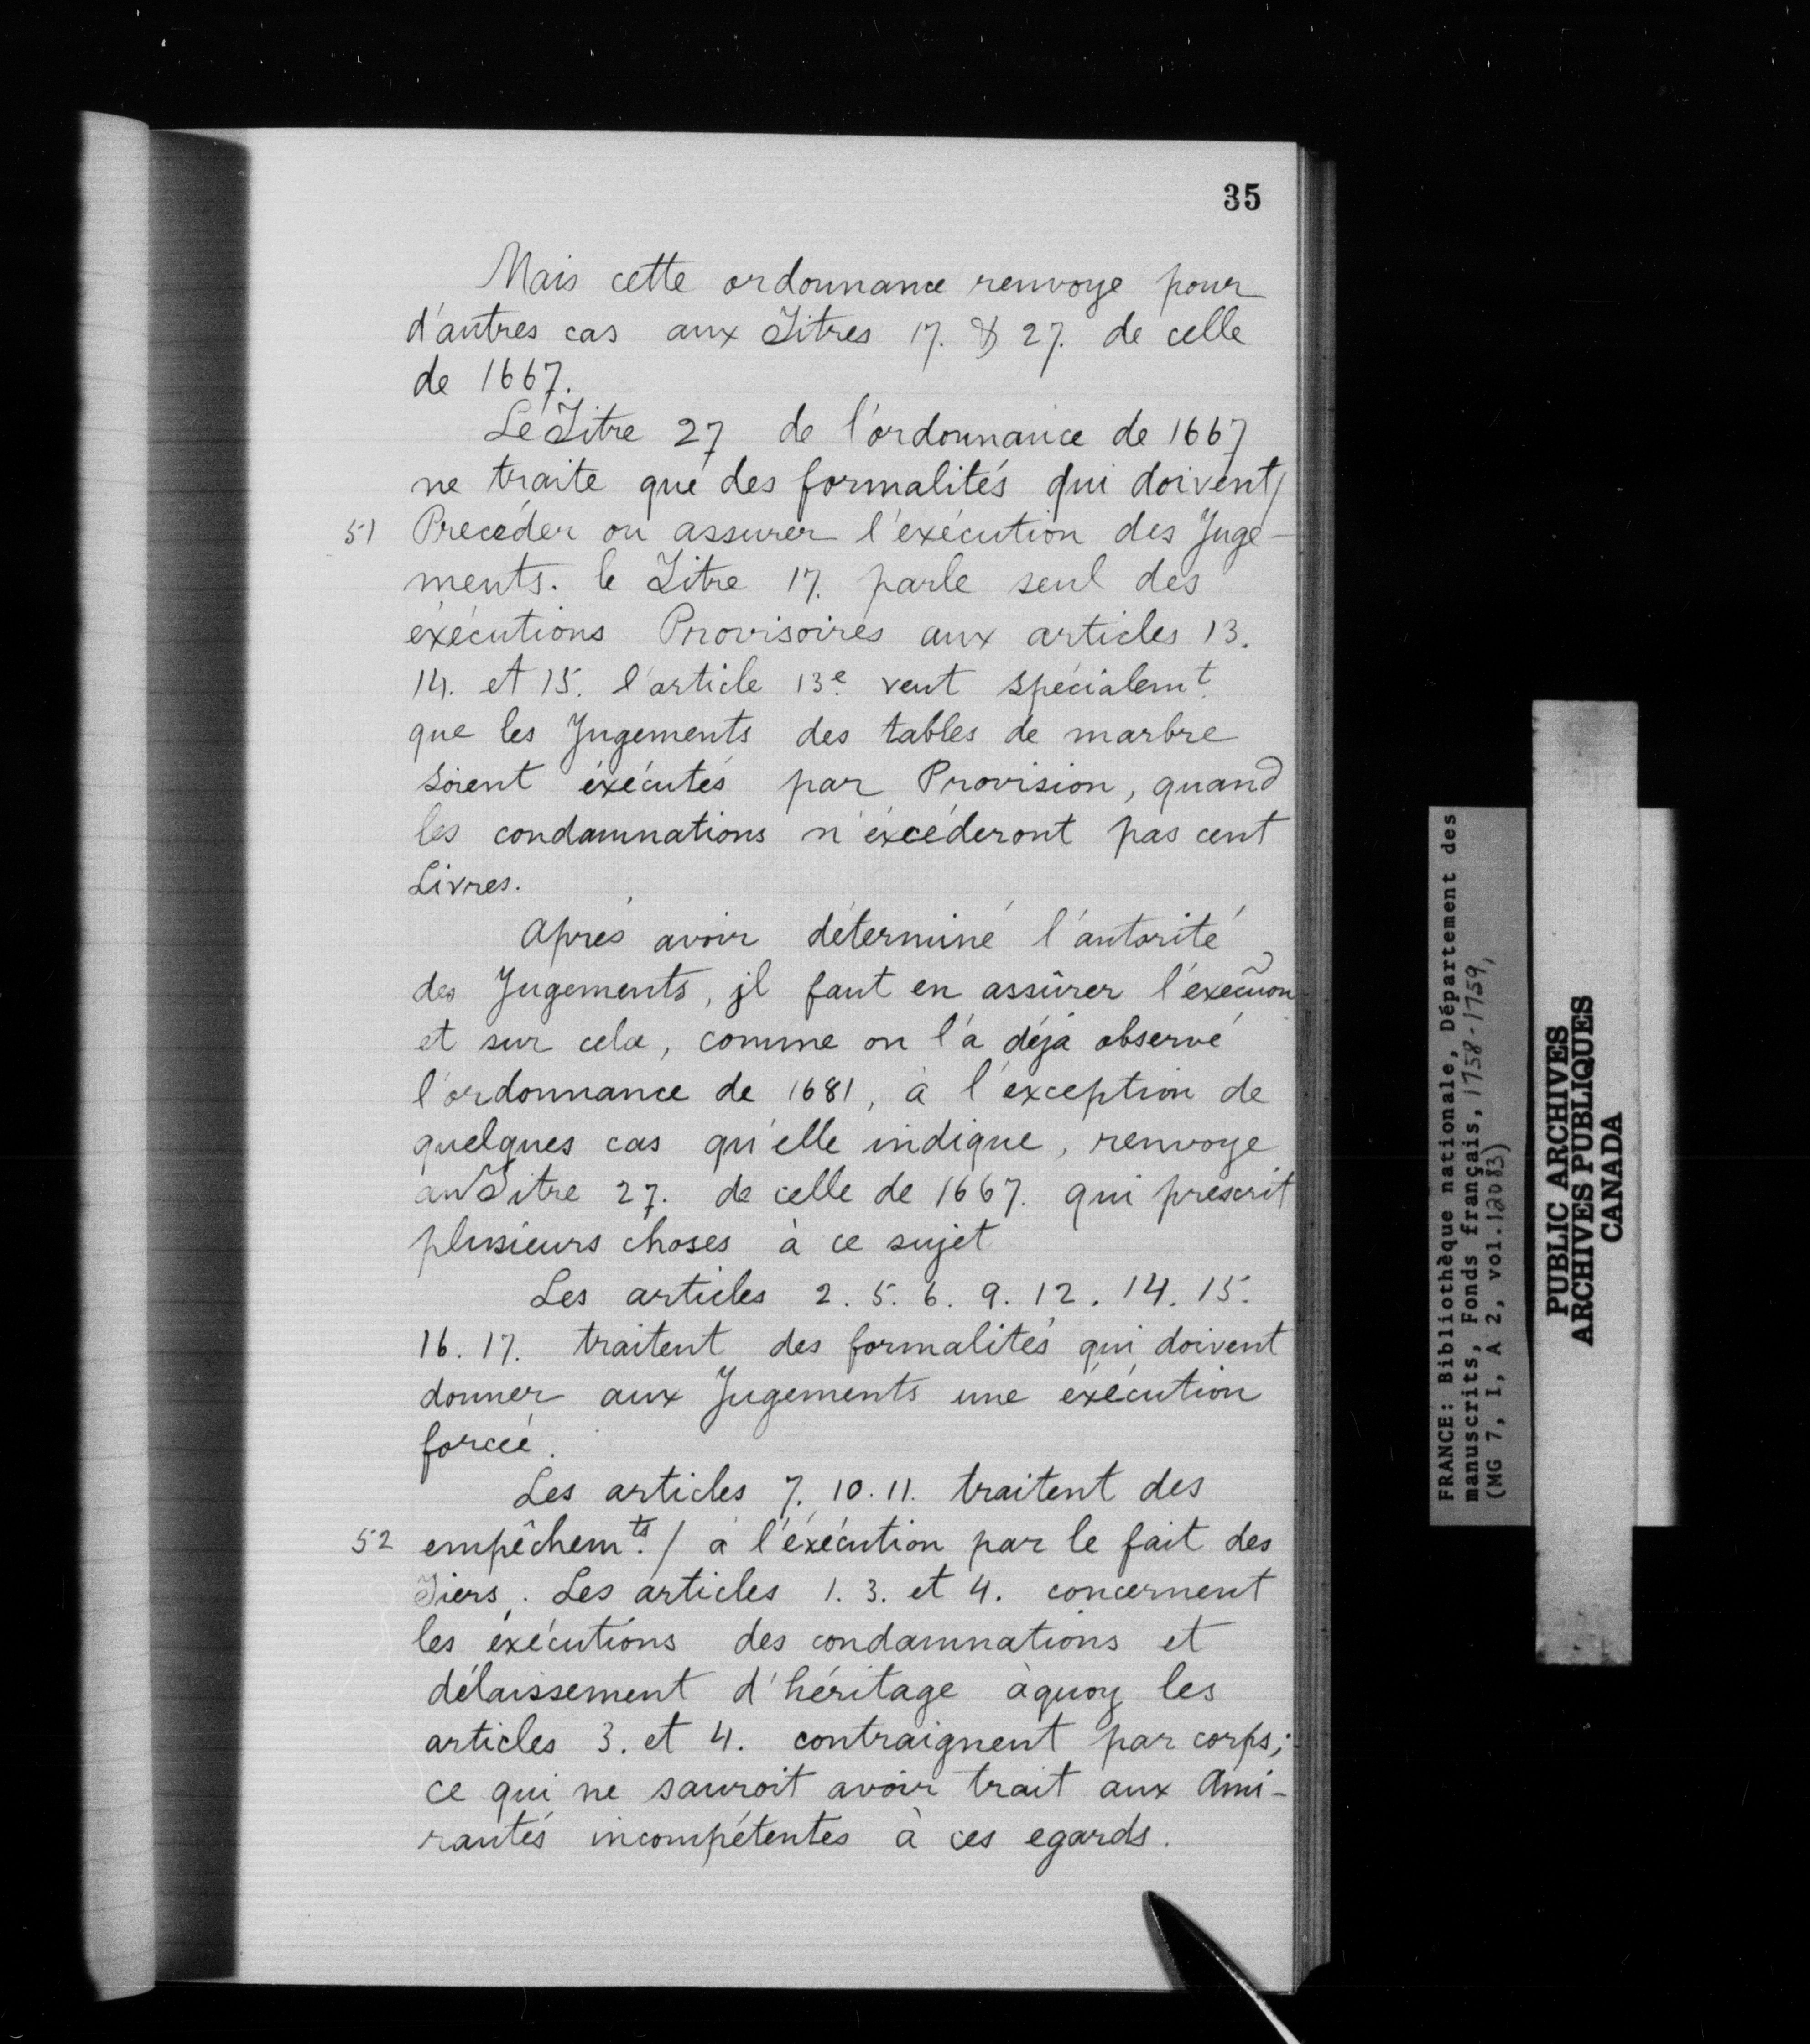 35
Mais cette ordonnance renvoye pour
d'autres cas aux Titres 17. & 27. de celle
de 1667.
Le Titre 27 de l'ordonnance de 1667
ne traite que des formalités qui doivent/
51 Precéder ou assurer l'exécution des Juge-
ments. le Titre 17. parle seul des
éxécutions Provisoires aux articles 13.
14. et 15. l'article 13e. veut spécialemt.
que les Jugements des tables de marbre
soient éxécutés par Provision, quand
les condamnations n'éxcéderont pas cent
Livres.
Aprés avoir déterminé l'autorité
des Jugements, jl faut en assûrer l'exécuõn
et sur cela, comme on l'a déja observé
l'ordonnance de 1681, à l'éxception de
quelques cas qu'elle indique, renvoye
au Titre 27. de celle de 1667. qui prescrit
plusieurs choses à ce sujet
Les articles 2. 5. 6. 9. 12. 14. 15.
16. 17. traitent des formalités qui doivent
donner aux Jugements une éxécution
forcée.
Les articles 7. 10. 11. traitent des
52 empêchemts./ à l'éxécution par le fait des
Tiers. Les articles 1. 3. et 4. concernent
les éxécutions des condamnations et
délaissement d'héritage àquoy les
articles 3. et 4. contraignent par corps;
ce qui ne sauroit avoir trait aux Ami-
rautés incompétentes à ces egards.
FRANCE: Bibliothèque nationale, Département des
manuscrits, Fonds français, 1758-1759,
(MG 7, I, A 2, vol. 12083)
PUBLIC ARCHIVES
ARCHIVES PUBLIQUES
CANADA